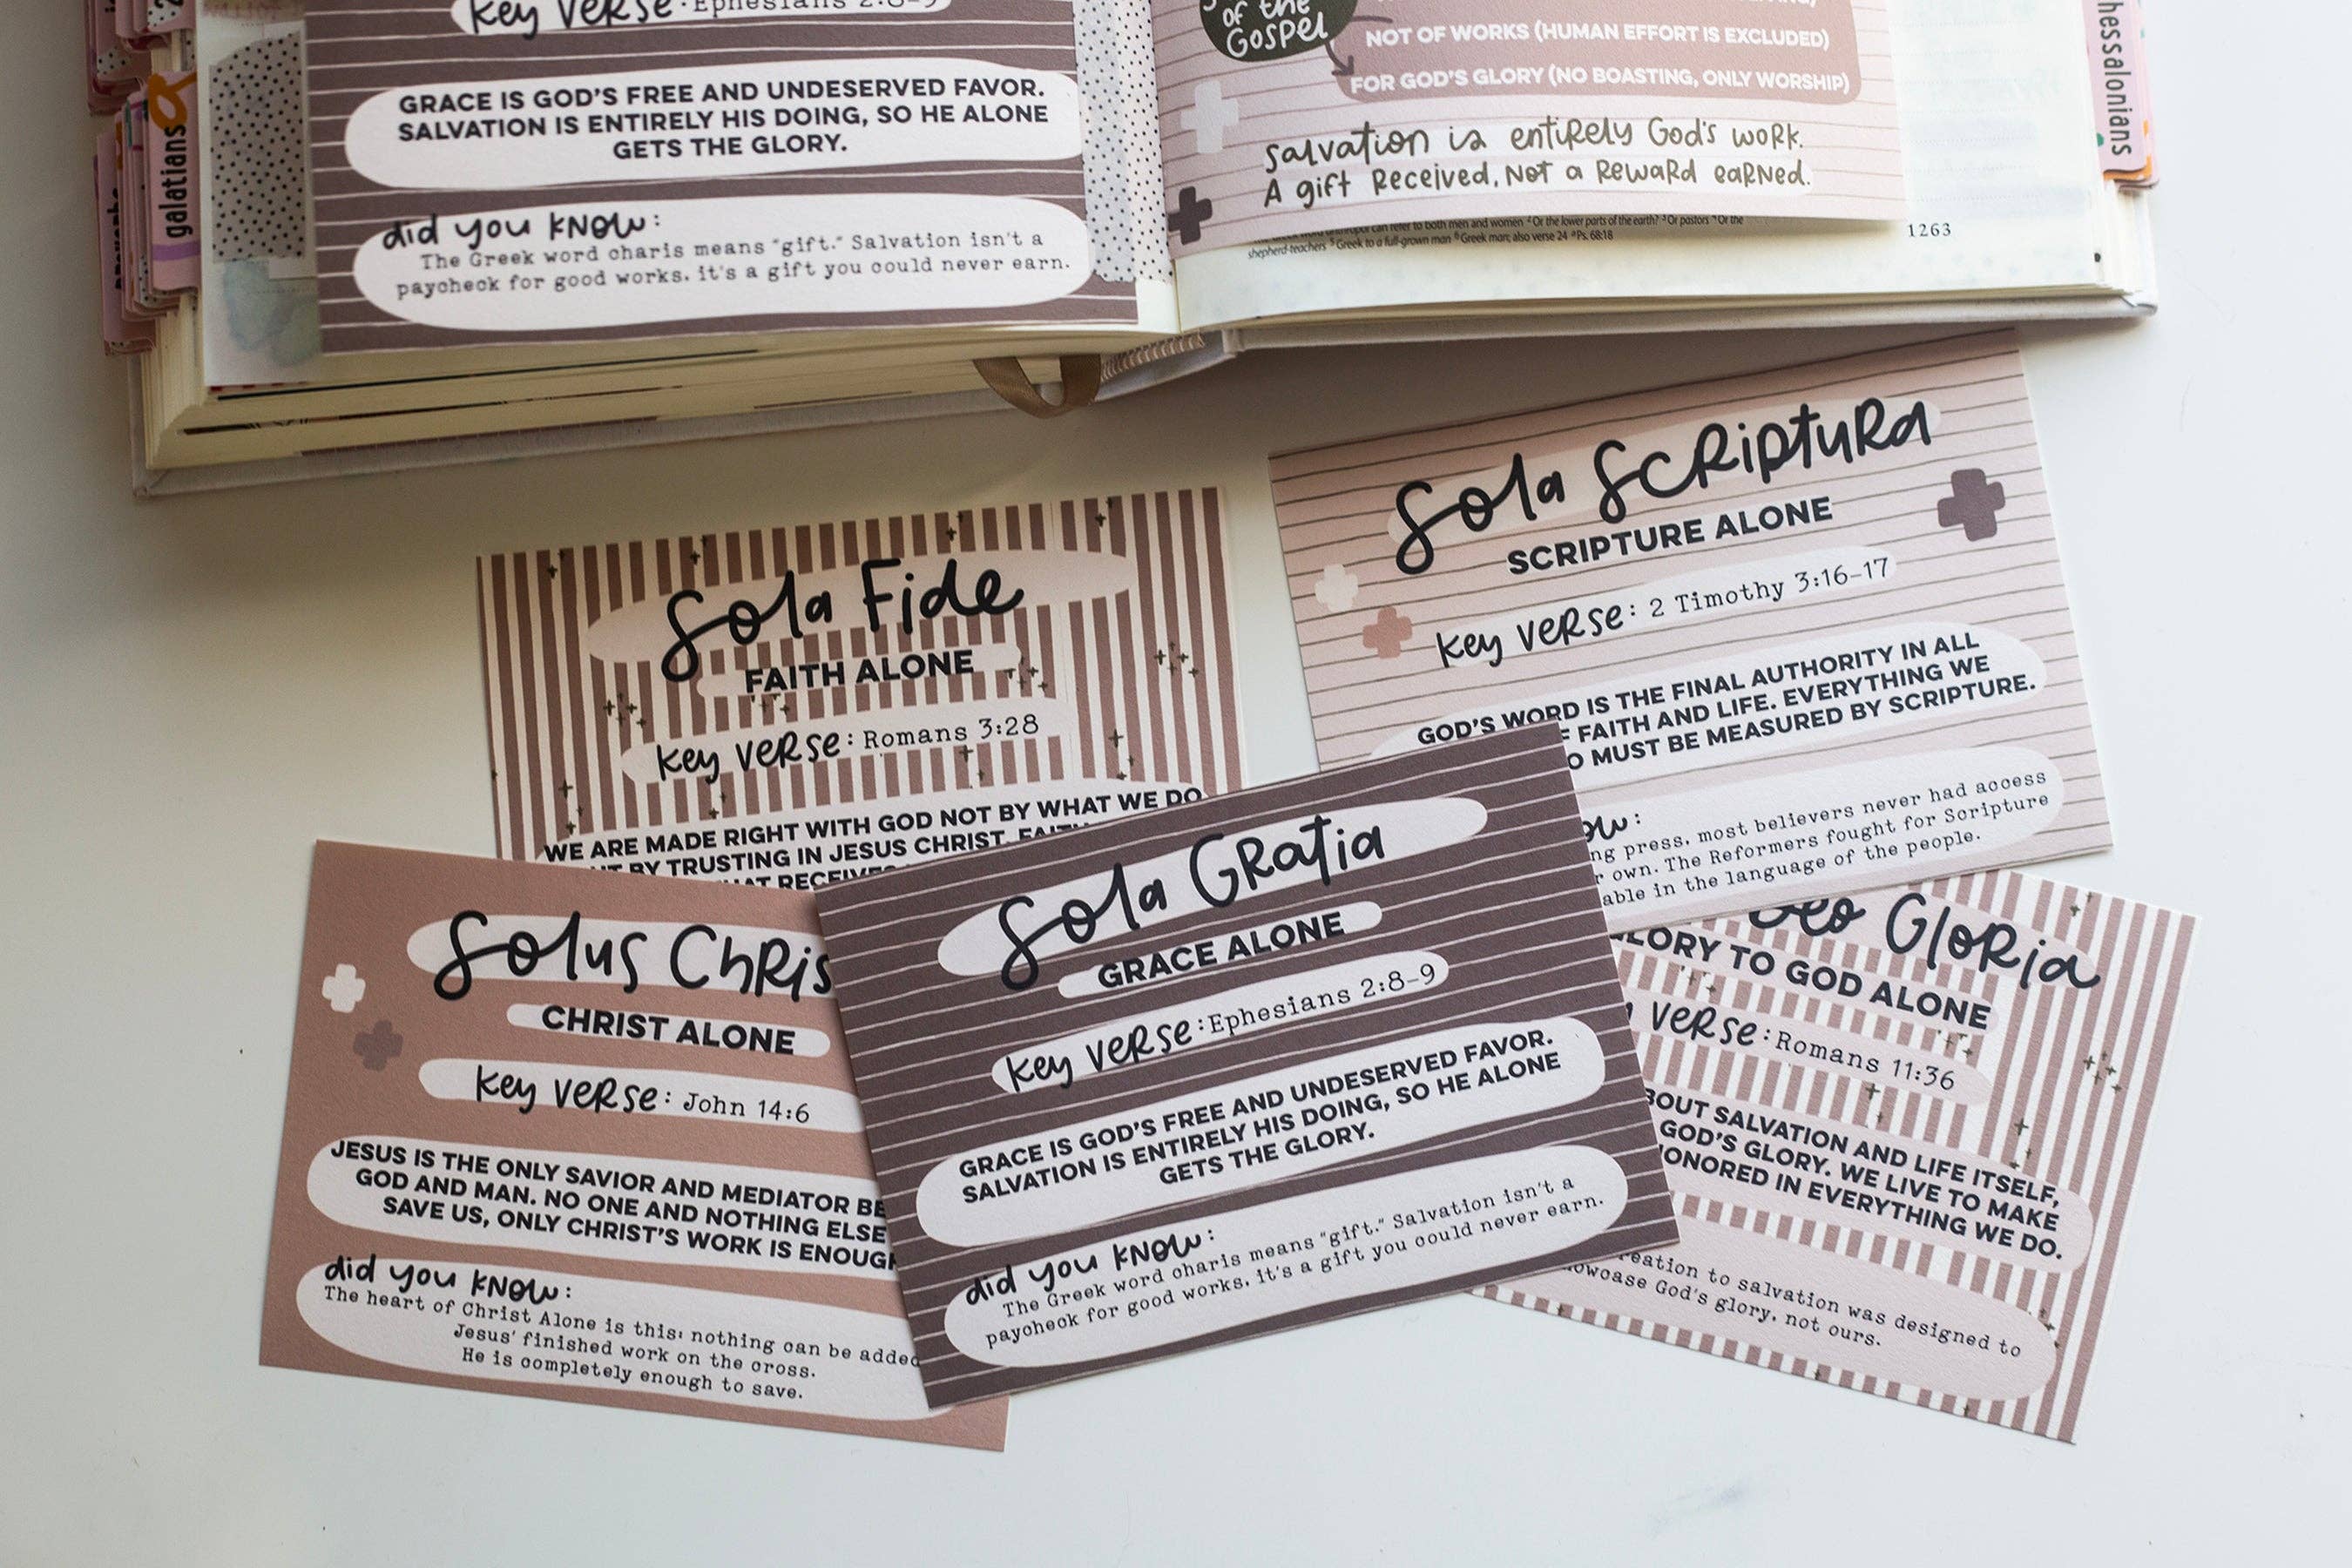 Key Verse: Ephesians 2:8-9
GRACE IS GOD'S FREE AND UNDESERVED FAVOR.
SALVATION IS ENTIRELY HIS DOING, SO HE ALONE
GETS THE GLORY.
did you know:
The Greek word charis means "gift." Salvation isn't a
paycheck for good works, it's a gift you could never earn.
galatians
of the
Gospel
NOT OF WORKS (HUMAN EFFORT IS EXCLUDED)
FOR GOD'S GLORY (NO BOASTING, ONLY WORSHIP)
Salvation is entirely God's work.
A gift Received, Not a Reward earned.
can refer to both men and women 2 Or the lower parts of the earth? 3 Or pastors 4 Or the
shepherd-teachers 5 Greek to a full-grown man 6 Greek man; also verse 24 Ps. 68:18
1263
hessalonians
Sola Scriptura
SCRIPTURE ALONE
Key Verse: 2 Timothy 3:16-17
GOD'S WORD IS THE FINAL AUTHORITY IN ALL
FAITH AND LIFE. EVERYTHING WE
MUST BE MEASURED BY SCRIPTURE.
ow:
ng press, most believers never had access
own. The Reformers fought for Scripture
able in the language of the people.
Sola Fide
FAITH ALONE
Key Verse: Romans 3:28
WE ARE MADE RIGHT WITH GOD NOT BY WHAT WE DO
BY TRUSTING IN JESUS CHRIST.
Solus Chris
CHRIST ALONE
Key Verse: John 14:6
JESUS IS THE ONLY SAVIOR AND MEDIATOR BE
GOD AND MAN. NO ONE AND NOTHING ELSE
SAVE US, ONLY CHRIST'S WORK IS ENOUGH
did you know:
The heart of Christ Alone is this: nothing can be added
Jesus' finished work on the cross.
He is completely enough to save.
Sola Gratia
GRACE ALONE
Key Verse: Ephesians 2:8-9
GRACE IS GOD'S FREE AND UNDESERVED FAVOR.
SALVATION IS ENTIRELY HIS DOING, SO HE ALONE
GETS THE GLORY.
did you know:
The Greek word charis means "gift." Salvation isn't a
paycheck for good works, it's a gift you could never earn.
Deo Gloria
GLORY TO GOD ALONE
Verse: Romans 11:36
BOUT SALVATION AND LIFE ITSELF,
GOD'S GLORY. WE LIVE TO MAKE
ONORED IN EVERYTHING WE DO.
reation to salvation was designed to
owcase God's glory, not ours.